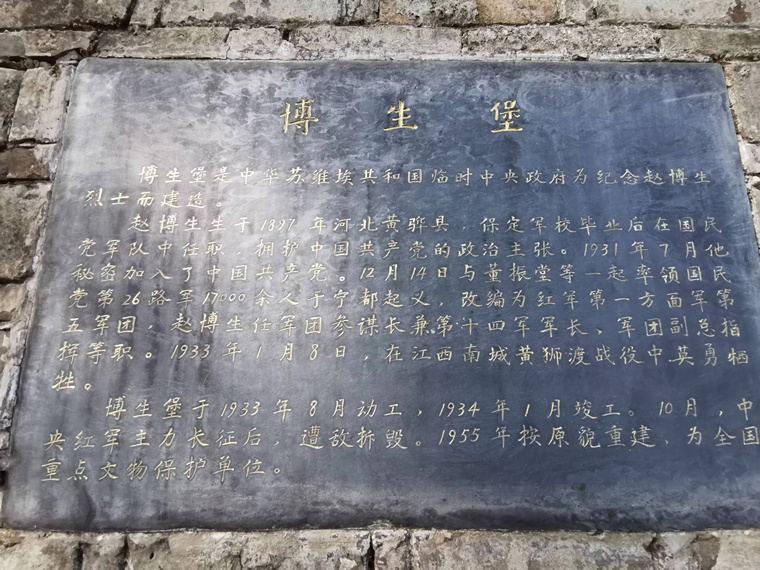 博生堡
博生堡是中华苏维埃共和国临时中央政府为纪念赵博生
烈士而建造。
赵博生生于1897年河北黄骅县，保定军校毕业后在国民
党军队中任职，拥护中国共产党的政治主张。1931年7月他
秘密加入了中国共产党。12月14日与董振堂等一起率领国民
党第26路军17000余人于宁都起义，改编为红军第一方面军第
五军团，赵博生任军团参谋长兼第十四军军长、军团副总指
挥等职。1933年1月8日，在江西南城黄狮渡战役中英勇牺
牲。
博生堡于1933年8月动工，1934年1月竣工。10月，中
央红军主力长征后，遭敌拆毁。1955年按原貌重建、为全国
重点文物保护单位。